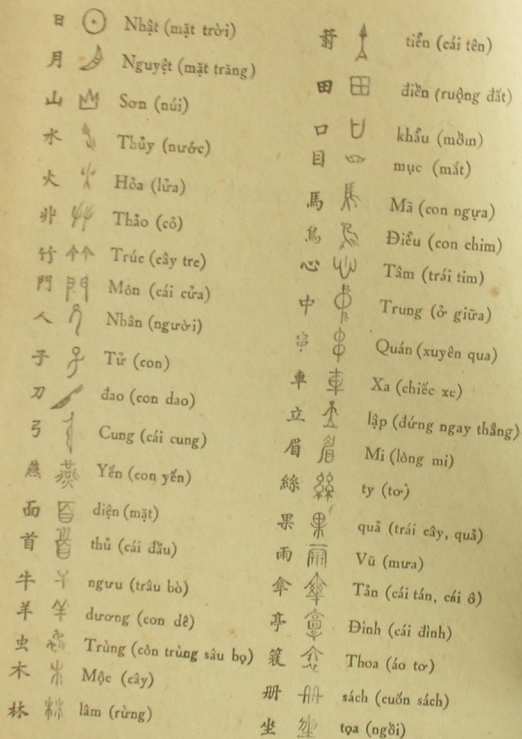 日 Nhật (mặt trời)
月 Nguyệt (mặt trăng)
山 Sơn (núi)
水 Thủy (nước)
火 Hỏa (lửa)
艸 Thảo (cỏ)
竹 Trúc (cây tre)
門 Môn (cái cửa)
人 Nhân (người)
子 Tử (con)
刀 đao (con dao)
弓 Cung (cái cung)
燕 Yến (con yến)
面 diện (mặt)
首 thủ (cái đầu)
牛 ngưu (trâu bò)
羊 dương (con dê)
虫 Trùng (côn trùng sâu bọ)
木 Mộc (cây)
林 lâm (rừng)
tiễn (cái tên)
田 điền (ruộng đất)
口 khẩu (mồm)
目 mục (mắt)
馬 Mã (con ngựa)
鳥 Điểu (con chim)
心 Tâm (trái tim)
中 Trung (ở giữa)
Quán (xuyên qua)
車 Xa (chiếc xe)
立 lập (đứng ngay thẳng)
眉 Mi (lông mi)
絲 ty (tơ)
果 quả (trái cây, quả)
雨 Vũ (mưa)
傘 Tản (cái tán, cái ô)
亭 Đình (cái đình)
Thoa (áo tơ)
册 sách (cuốn sách)
坐 tọa (ngồi)